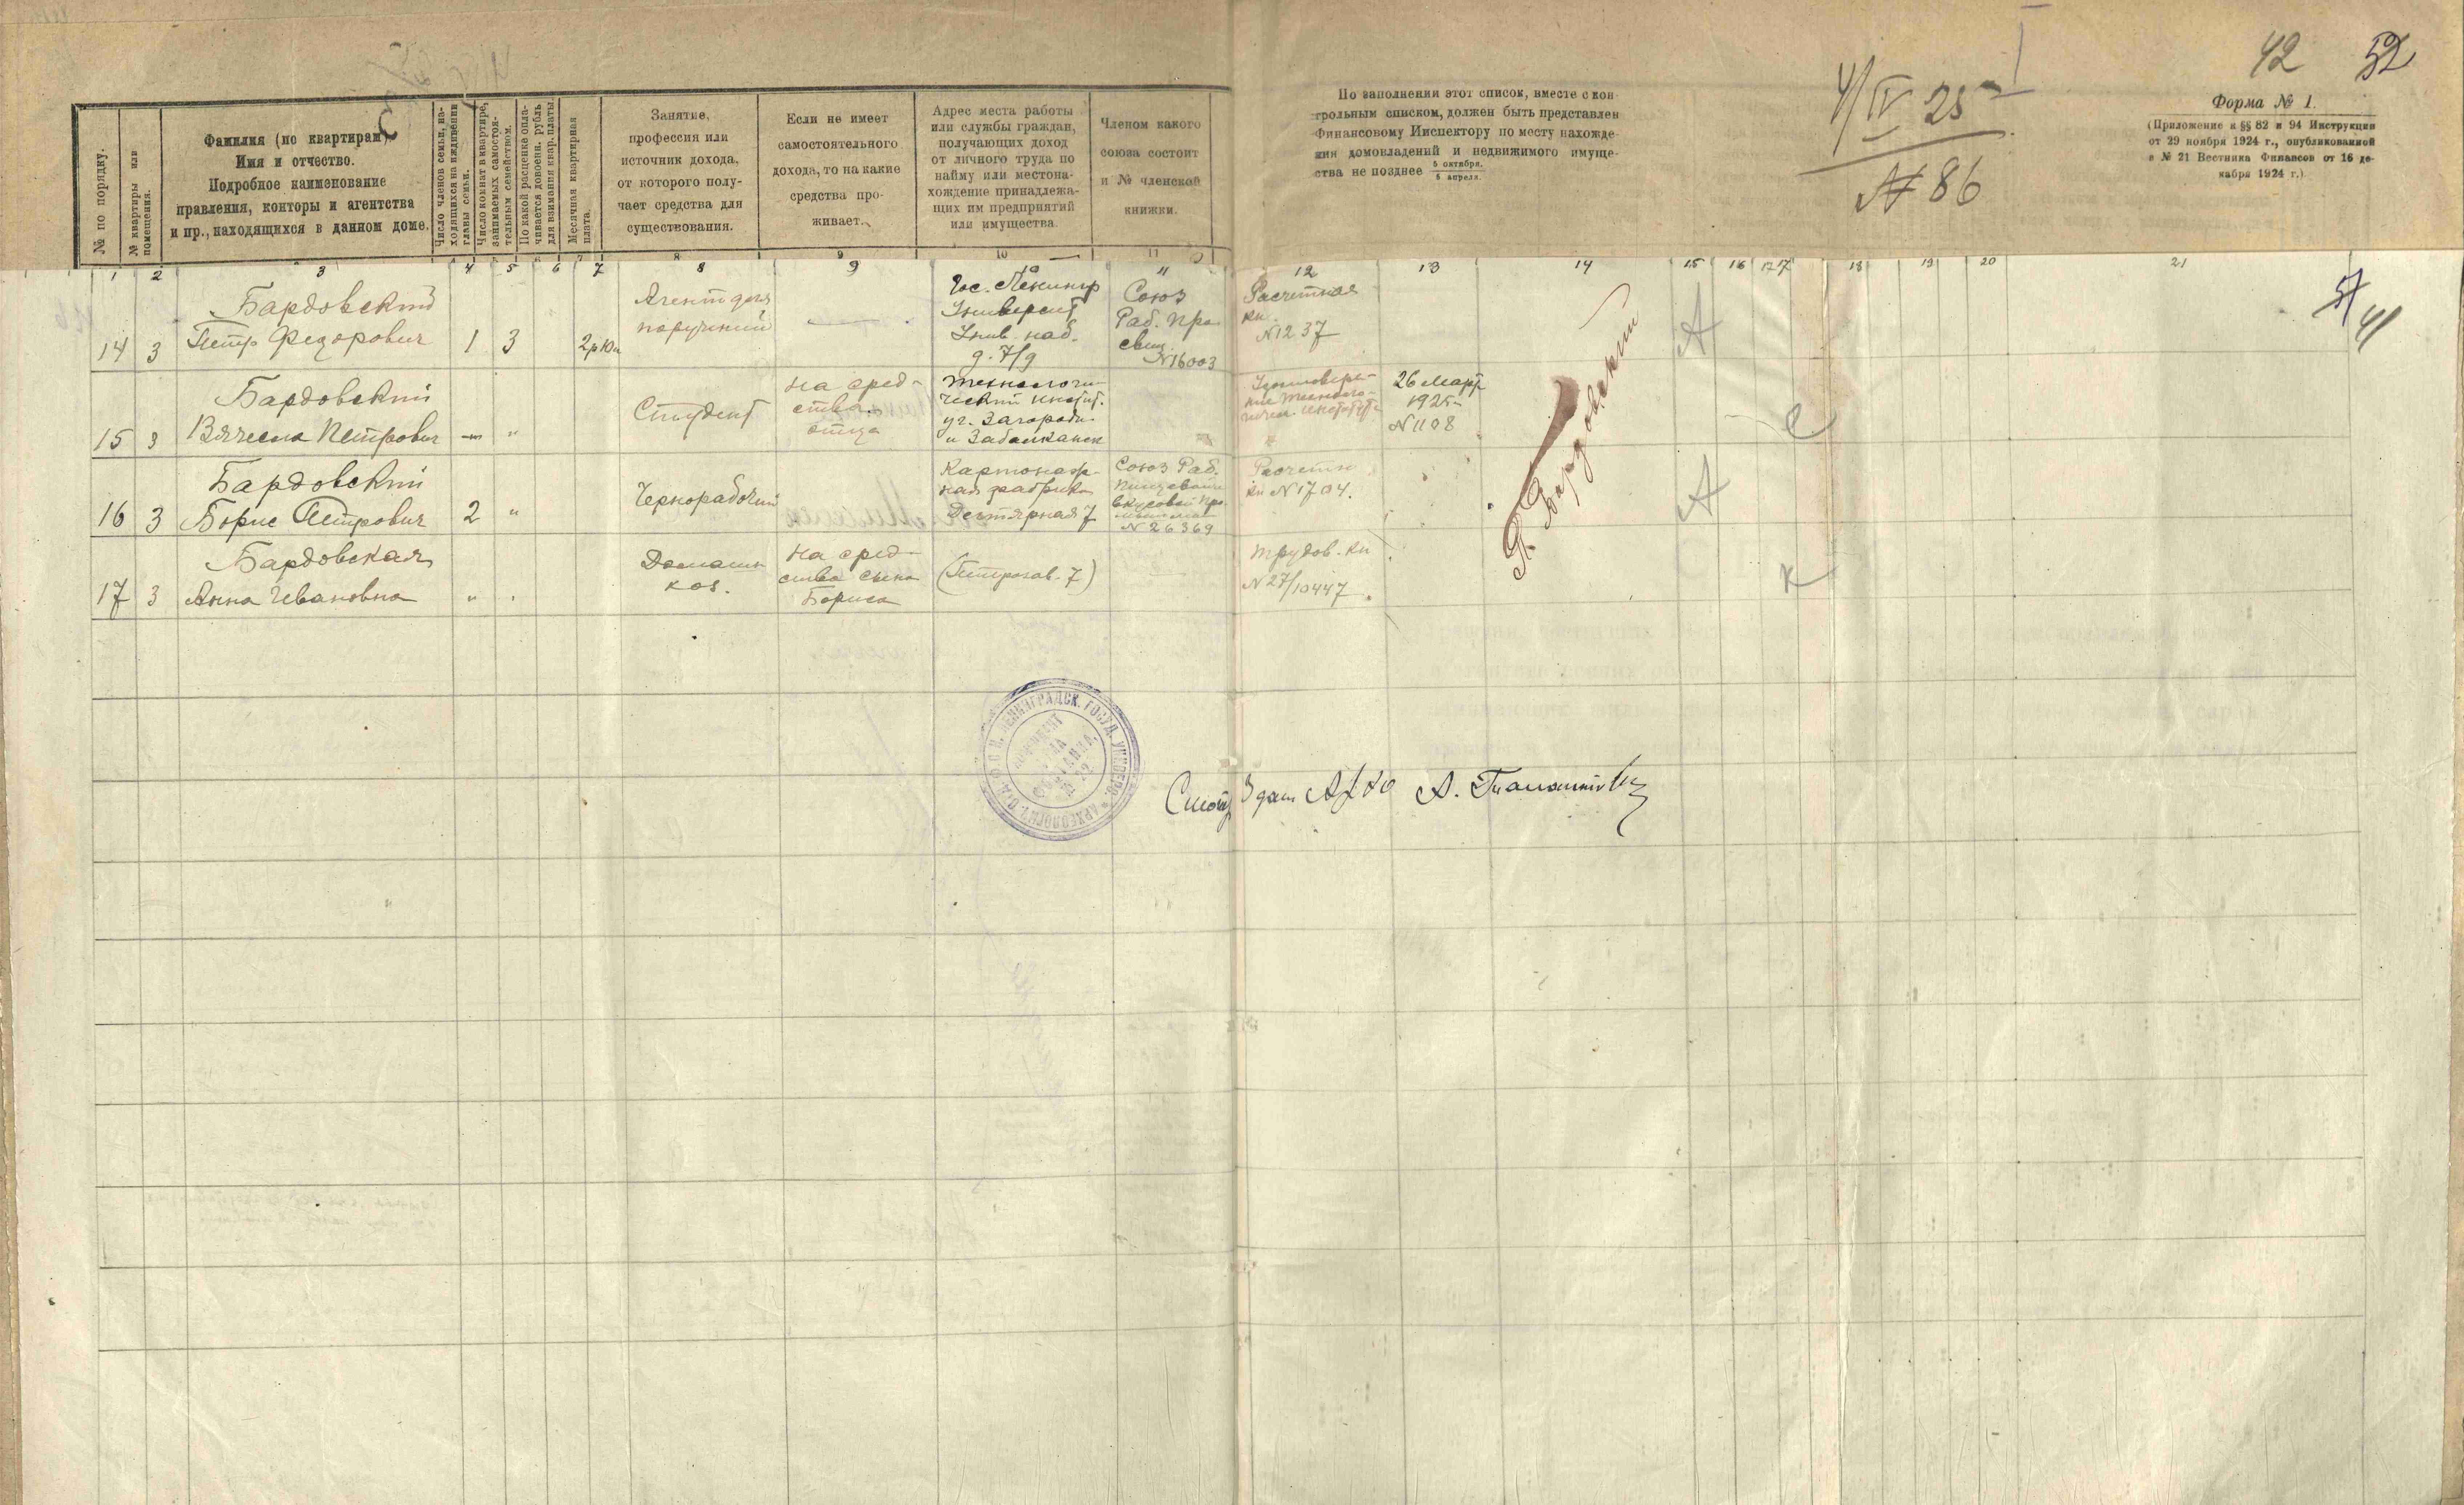 42 52
4/IV 25
№ 86
Форма № 1.
(Приложение к §§ 82 и 94 Инструкции
от 29 ноября 1924 г., опубликованной
в № 21 Вестника Финансов от 16 де-
кабря 1924 г.)
По заполнении этот список, вместе с кон-
трольным списком, должен быть представлен
Финансовому Инспектору по месту нахожде-
ния домовладений и недвижимого имуще-
ства не позднее 5 октября.
5 апреля.
№ по порядку.
№ квартиры или
помещения.
Фамилия (по квартирам)
Имя и отчество.
Подробное наименование
правления, конторы и агентства
и пр., находящихся в данном доме.
Число членов семьи, на-
ходящихся на иждивении
главы семьи.
Число комнат в квартире,
занимаемых самостоя-
тельным семейством.
По какой расценке опла-
чивается довоенн. рубль
для взимания квар. платы.
Месячная квартирная
плата.
Занятие,
профессия или
источник дохода,
от которого полу-
чает средства для
существования.
Если не имеет
самостоятельного
дохода, то на какие
средства про-
живает.
Адрес места работы
или службы граждан,
получающих доход
от личного труда по
найму или местона-
хождение принадлежа-
щих им предприятий
или имущества.
Членом какого
союза состоит
и № членской
книжки.
1 2 3 4 5 6 7 8 9 10 11 12 13 14 15 16 17 18 19 20 21
51
41
14 3
Бардовский
Петр Федорович
1 3 2р 10к
Агент для
поручений
Гос. Ленингр
Университ
Унив. наб.
д. 7/9
Союз
Раб. Про
свещ.
№16003
Расчетная
кн.
№1237
А
15 3
Бардовский
Вячеслав Петрович
— "
Студент
на сред-
ства
отца
Технологи-
ческий инстит.
уг. Загородн.
и Забалканск
Удостовере-
ние Техноло-
гическ. института
26 Март
1925
№1108
с
16 3
Бардовский
Борис Петрович
2 "
Чернорабочий
Картонаж-
ная фабрика
Дегтярная 7
Союз Раб.
Пищевой
вкусовой про
№26369
Расчетн
кн №1704.
А
17 3
Бардовская
Анна Ивановна
" "
Домашн
хоз.
На сред-
ства сына
Бориса
(Петрозав. 7)
Трудов. кн
№27/10447.
к
П. Бардовский
ЛЕНИНГРАДСК. ГОСУД. УНИВЕРС. * АРХЕОЛОГИЧ.